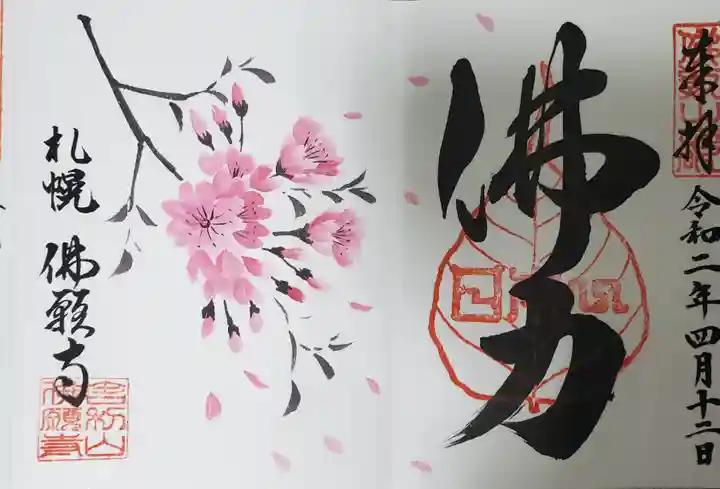 奉拝
令和二年四月十二日
佛力
札幌 佛願寺